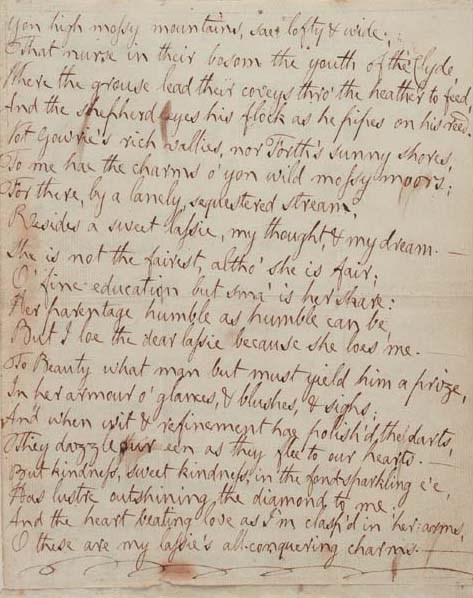 Yon high mossy mountains, sae lofty & wide,
That nurse in their bosom the youth of the Clyde,
Where the grouse lead their coveys thro' the heather to feed
And the shepherd eyes his flock as he pipes on his reed.
Not Gowrie's rich vallies, nor Forth's sunny shores,
To me hae the charms o' yon wild mossy moors;
For there, by a lanely, sequestered stream,
Resides a sweet lassie, my thought, & my dream. —
She is not the fairest, altho' she is fair;
O' fine education but sma' is her share:
Her parentage humble as humble can be,
But I loe the dear lassie because she loes me. —
To Beauty what man but must yield him a prize,
In her armour o' glances, & blushes, & sighs;
And when wit & refinement hae polish'd, the darts,
They dazzle our een as they flee to our hearts. —
But kindness, sweet kindness, in the fond sparkling e'e,
Has lustre outshining the diamond to me;
And the heart beating love as I'm clasp'd in her arms,
O these are my lassie's all-conquering charms. —